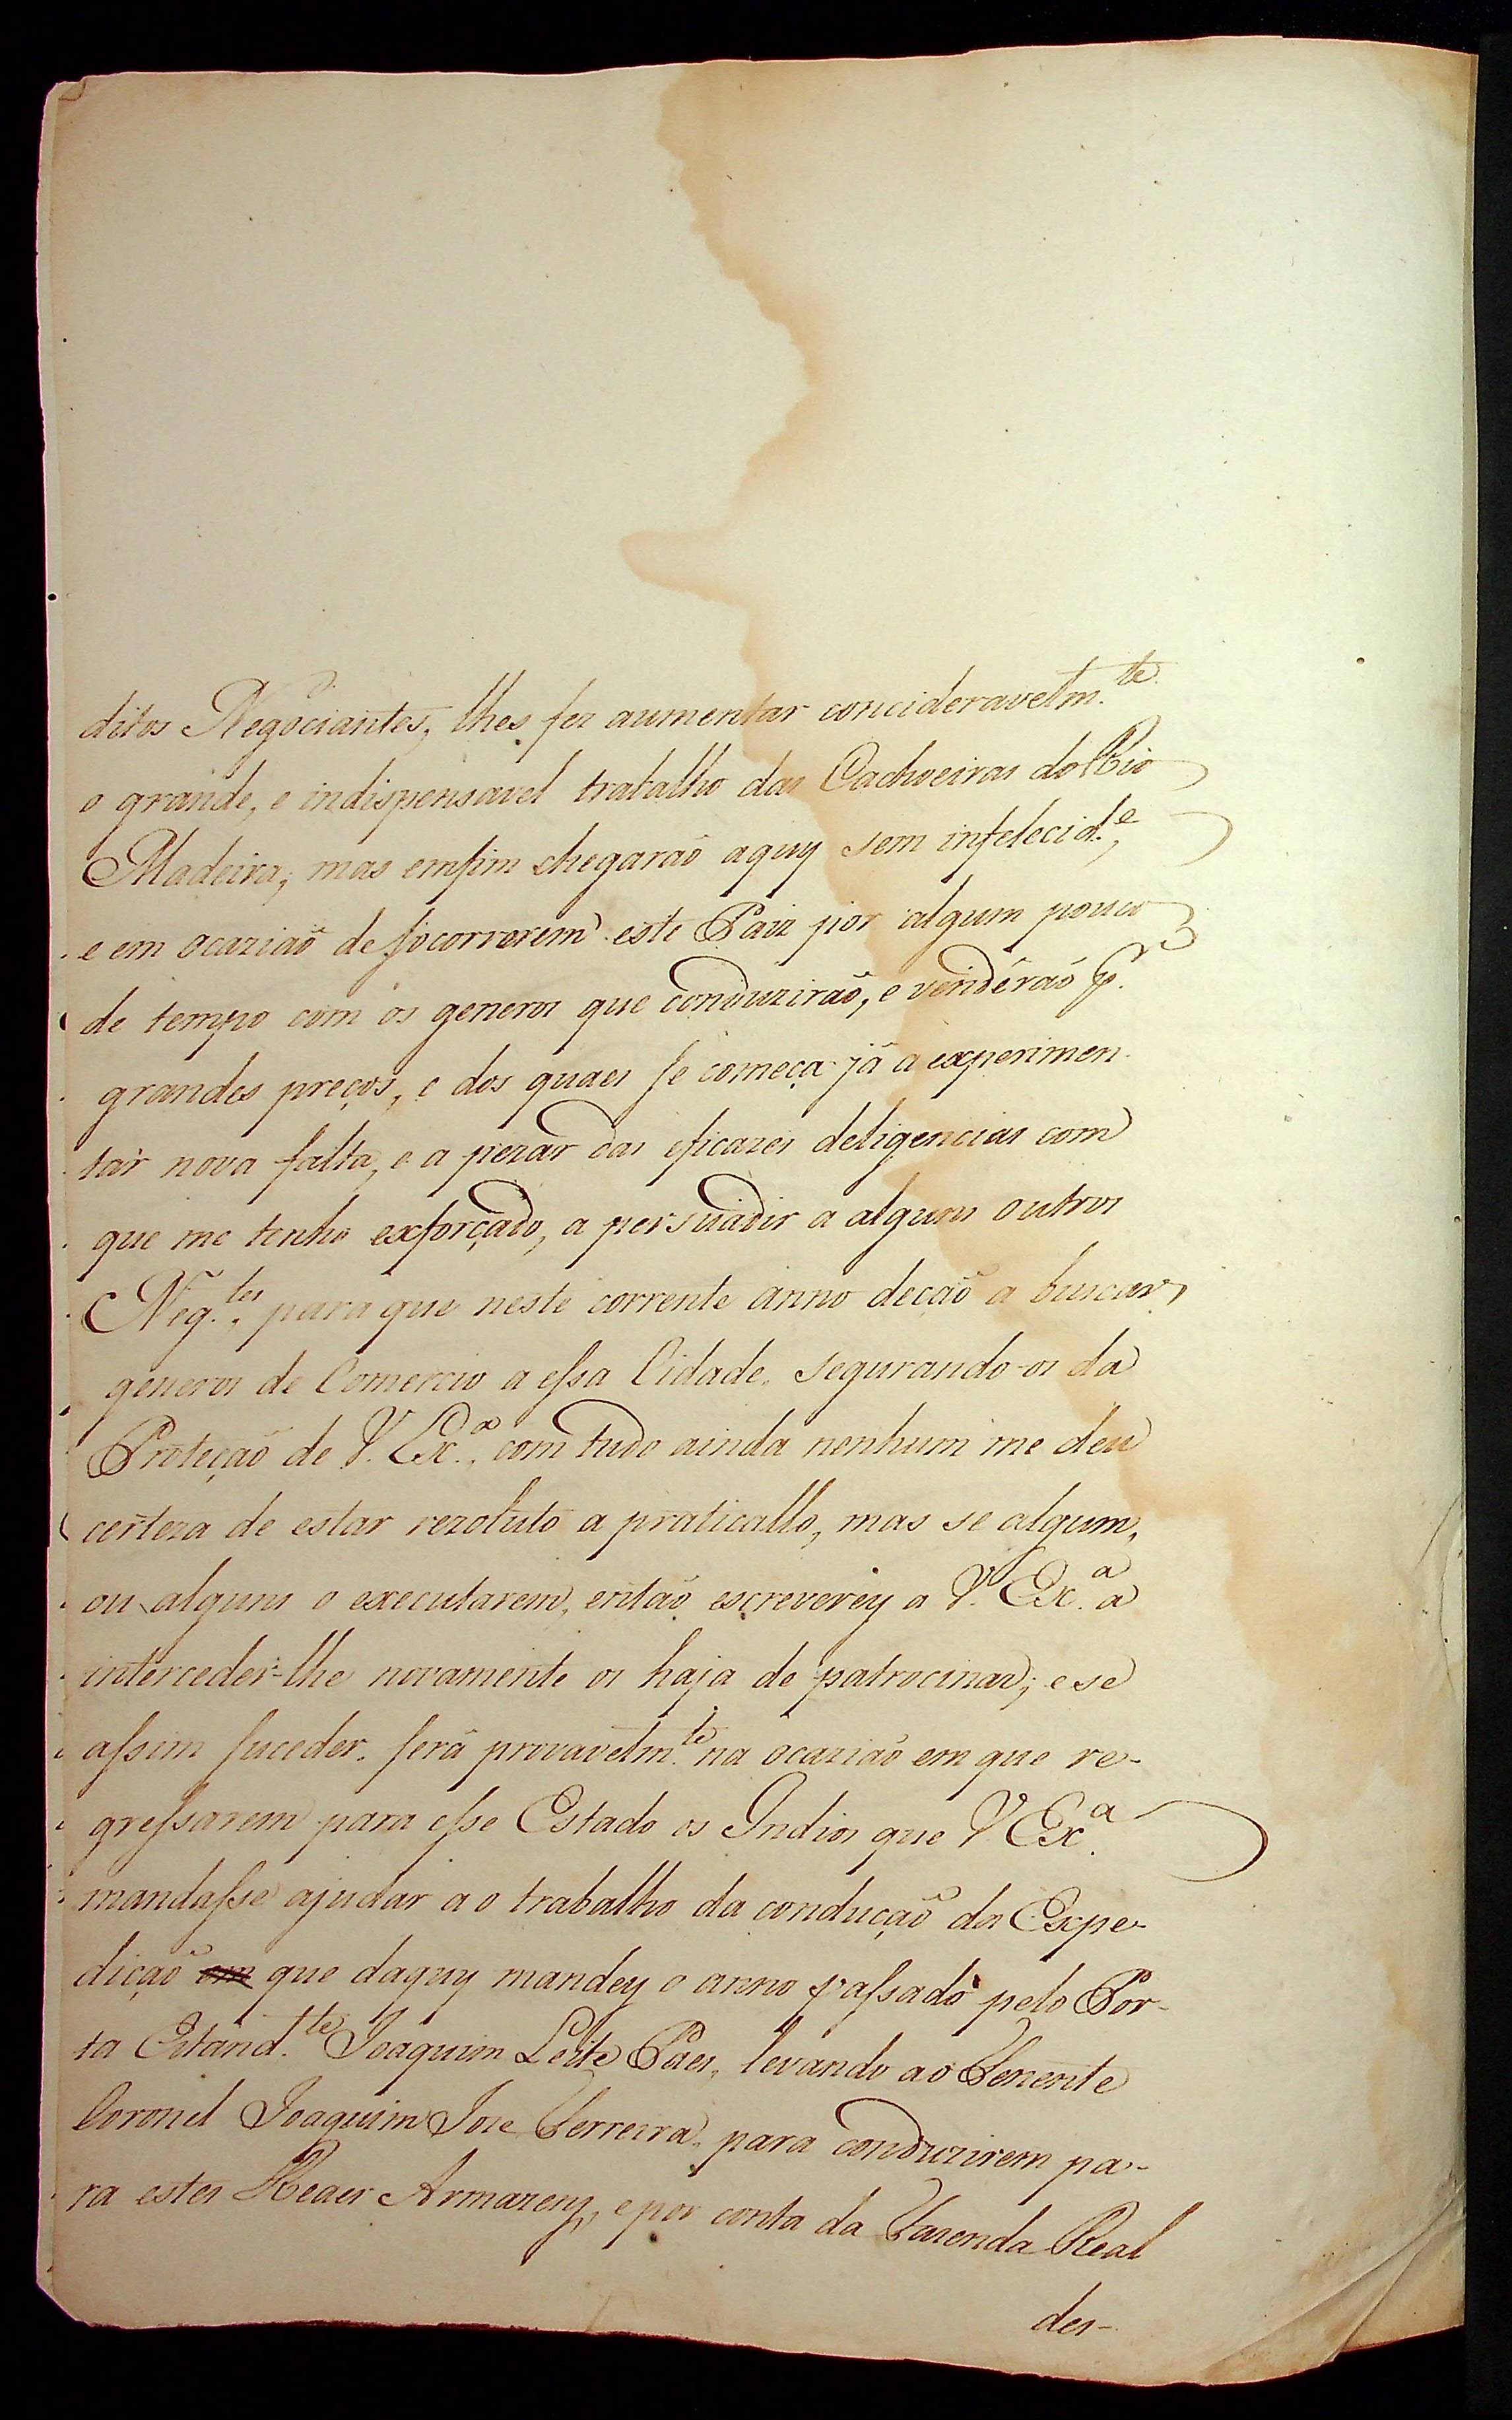 ditos Negociantes, lhes fez aumentar concideravelm.te
o grande, e indispensavel trabalho das Cachoeiras do Rio
Madeira; mas emfim chegaraõ aquy sem infelecid.e,
e em ocaziaõ de socorrerem este Paiz por algum pouco
de tempo com os generos que conduziraõ, e venderaõ p.r
grandes preços, e dos quaes se começa já a experimen-
tar nova falta, e a pezar das eficazes deligencias com
que me tenho exforçado, a persuadir a alguns outros
Neg.tes, para que neste corrente anno decaõ a buscar
generos de Comercio a essa Cidade, segurando-os da
Proteçaõ de V. Ex.a, com tudo ainda nenhum me deu
certeza de estar rezoluto a praticallo, mas se algum,
ou alguns o executarem, entaõ escreverey a V. Ex.a a
interceder-lhe novamente os haja de patrocinar; e se
assim suceder, será provavelm.te na ocaziaõ em que re-
gressarem para esse Estado os Indios que V. Ex.a
mandasse ajudar ao trabalho da conduçaõ da Expe-
diçaõ em que daquy mandey o anno passado pelo Por-
ta Estand.te Joaquim Leite Paes, levando ao Tenente
Coronel Joaquim Joze Ferreira, para conduzirem pa-
ra estes Reaes Armazens, e por conta da Fazenda Real
des-